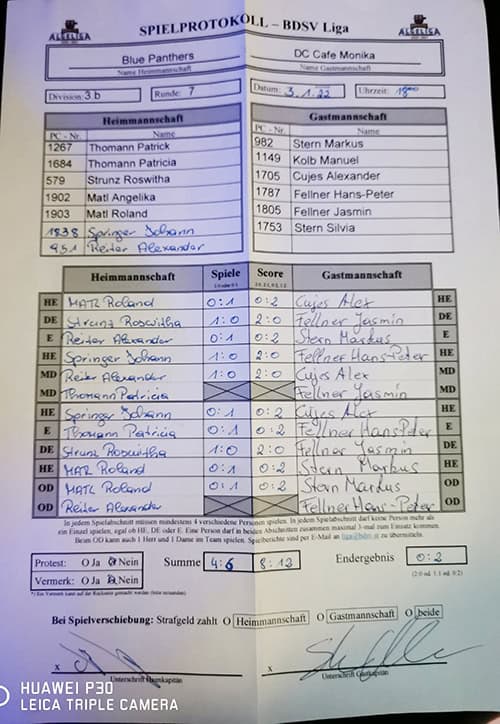 ALGELIGA SPIELPROTOKOLL – BDSV Liga ALGELIGA
Blue Panthers DC Cafe Monika
Name Heimmannschaft Name Gastmannschaft
Division: 3.b Runde: 7 Datum: 3.1.22 Uhrzeit: 18⁰⁰
Heimmannschaft Gastmannschaft
PC - Nr. Name PC - Nr. Name
1267 Thomann Patrick 982 Stern Markus
1684 Thomann Patricia 1149 Kolb Manuel
579 Strunz Roswitha 1705 Cujes Alexander
1902 Matl Angelika 1787 Fellner Hans-Peter
1903 Matl Roland 1805 Fellner Jasmin
1838 Springer Johann 1753 Stern Silvia
951 Reiter Alexander
Heimmannschaft Spiele Score Gastmannschaft
HE MATL Roland 0:1 0:2 Cujes Alex HE
DE Strunz Roswitha 1:0 2:0 Fellner Jasmin DE
E Reiter Alexander 0:1 0:2 Stern Markus E
HE Springer Johann 1:0 2:0 Fellner Hans-Peter HE
MD Reiter Alexander 1:0 2:0 Cujes Alex MD
MD Thomann Patricia Fellner Jasmin MD
HE Springer Johann 0:1 0:2 Cujes Alex HE
E Thomann Patricia 0:1 0:2 Fellner Hans Peter E
DE Strunz Roswitha 1:0 2:0 Fellner Jasmin DE
HE MATL Roland 0:1 0:2 Stern Markus HE
OD MATL Roland 0:1 0:2 Stern Markus OD
OD Reiter Alexander Fellner Hans-Peter OD
In jedem Spielabschnitt müssen mindestens 4 verschiedene Personen spielen. In jedem Spielabschnitt darf keine Person mehr als
ein Einzel spielen, egal ob HE, DE oder E. Eine Person darf in beiden Abschnitten zusammen maximal 3-mal zum Einsatz kommen.
Beim OD kann auch 1 Herr und 1 Dame im Team spielen. Spielberichte sind per E-Mail an liga@bdsv.at zu übermitteln.
Protest: O Ja O Nein Summe 4:6 8:12 Endergebnis 0:2
Vermerk: O Ja O Nein
Bei Spielverschiebung: Strafgeld zahlt O Heimmannschaft O Gastmannschaft O beide
x x
Unterschrift Heimkapitän Unterschrift Gastkapitän
HUAWEI P30
LEICA TRIPLE CAMERA